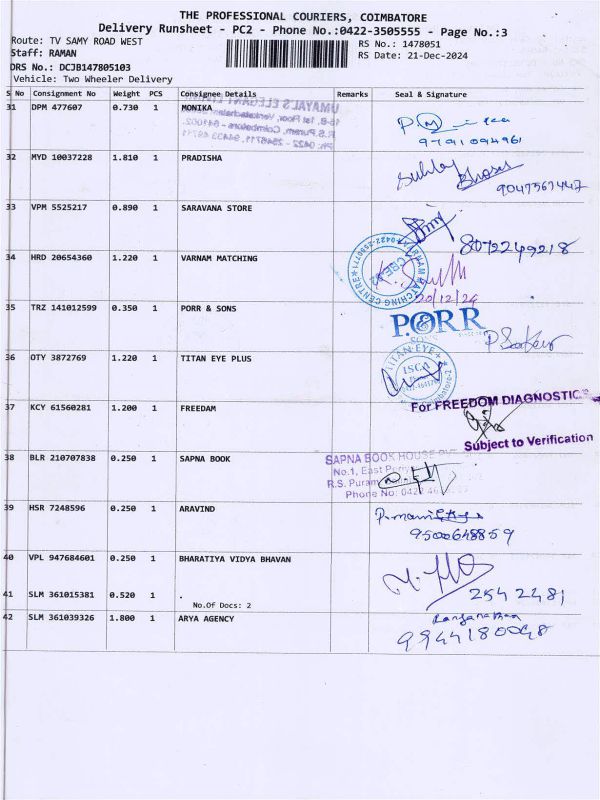 THE PROFESSIONAL COURIERS, COIMBATORE
Delivery Runsheet - PC2 - Phone No.:0422-3505555 - Page No.:3
Route: TV SAMY ROAD WEST
RS No.: 1478051
Staff: RAMAN
RS Date: 21-Dec-2024
DRS No.: DCJB147805103
Vehicle: Two Wheeler Delivery
S No Consignment No Weight PCS Consignee Details Remarks Seal & Signature
31 DPM 477607 0.730 1 MONIKA
9791094961
32 MYD 10037228 1.810 1 PRADISHA
9047567447
33 VPM 5525217 0.890 1 SARAVANA STORE
8072249218
34 HRD 20654360 1.220 1 VARNAM MATCHING
VARNAM MATCHING CENTRE
CBE-02
20/12/24
35 TRZ 141012599 0.350 1 PORR & SONS
PORR
& SONS
36 OTY 3872769 1.220 1 TITAN EYE PLUS
TITAN EYE+
37 KCY 61560281 1.200 1 FREEDAM
For FREEDOM DIAGNOSTIC
Subject to Verification
38 BLR 210707838 0.250 1 SAPNA BOOK
SAPNA BOOK HOUSE
No.1, East
R.S. Puram
Phone No: 0422
39 HSR 7248596 0.250 1 ARAVIND
9500648859
40 VPL 947684601 0.250 1 BHARATIYA VIDYA BHAVAN
41 SLM 361015381 0.520 1 .
2542481
No.Of Docs: 2
42 SLM 361039326 1.800 1 ARYA AGENCY
9944180048